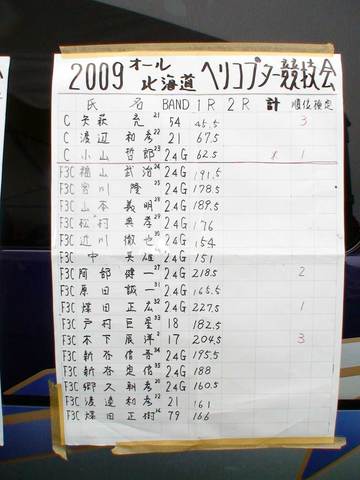 2009 オール北海道 ヘリコプター競技会
氏 名 BAND 1R 2R 計 順位 検定
C 矢萩 亮 21 54 45.5 3
C 渡辺 和彦 22 21 67.5
C 小山 哲郎 23 24G 62.5 1
F3C 福山 武治 24 24G 191.5
F3C 宮川 隆 25 24G 178.5
F3C 山本 義明 28 24G 189.5
F3C 松村 典孝 29 24G 176
F3C 辺川 徹也 30 24G 154
F3C 中 英雄 24G 151
F3C 阿部 健一 27 24G 218.5 2
F3C 原田 誠一 31 24G 165.5
F3C 煤田 正広 32 24G 227.5 1
F3C 戸村 巨星 33 18 182.5
F3C 木下 辰洋 2 17 204.5 3
F3C 新谷 信吾 34 24G 195.5
F3C 新谷 定信 35 24G 188
F3C 郷久 朝彦 24G 160.5
F3C 渡辺 和彦 22 21 161
F3C 煤田 正樹 79 166